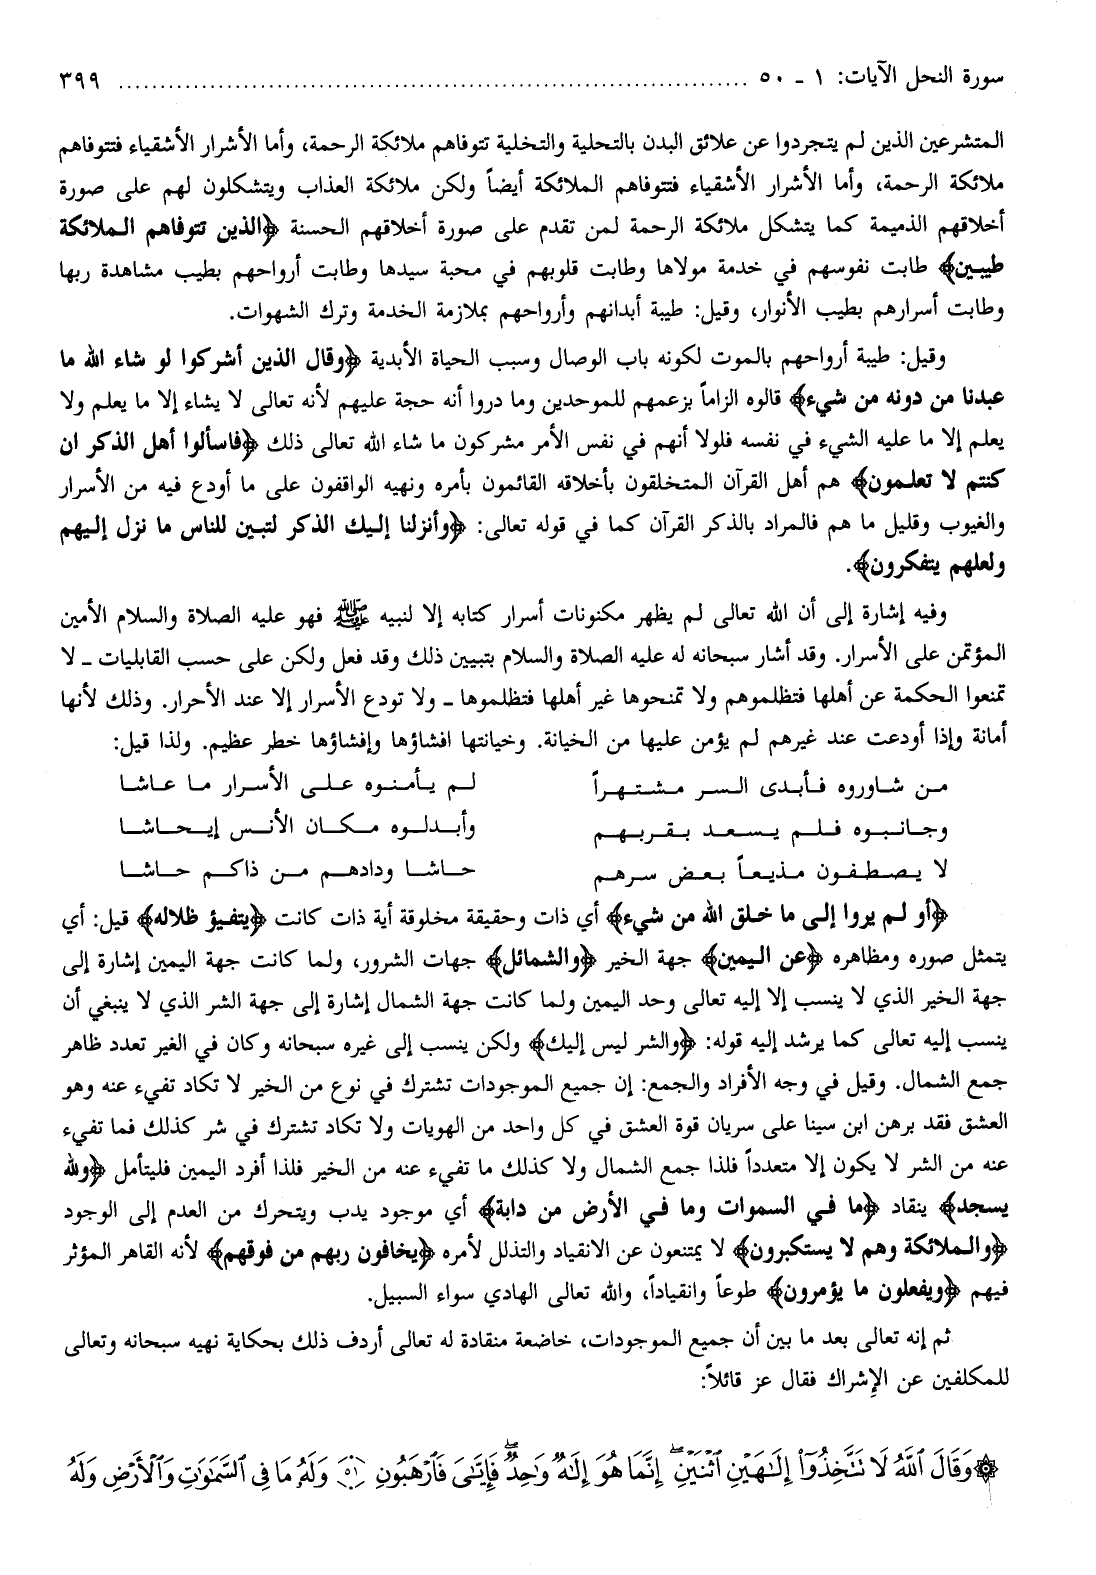 سورة النحل الآيات: ١ ـ ٥٠ ........................................................................ ٣٩٩
المتشرعين الذين لم يتجردوا عن علائق البدن بالتحلية والتخلية تتوفاهم ملائكة الرحمة، وأما الأشرار الأشقياء فتتوفاهم
ملائكة الرحمة، وأما الأشرار الأشقياء فتتوفاهم الملائكة أيضاً ولكن ملائكة العذاب ويتشكلون لهم على صورة
أخلاقهم الذميمة كما يتشكل ملائكة الرحمة لمن تقدم على صورة أخلاقهم الحسنة ﴿الذين تتوفاهم الملائكة
طيبين﴾ طابت نفوسهم في خدمة مولاها وطابت قلوبهم في محبة سيدها وطابت أرواحهم بطيب مشاهدة ربها
وطابت أسرارهم بطيب الأنوار، وقيل: طيبة أبدانهم وأرواحهم بملازمة الخدمة وترك الشهوات.
وقيل: طيبة أرواحهم بالموت لكونه باب الوصال وسبب الحياة الأبدية ﴿وقال الذين أشركوا لو شاء الله ما
عبدنا من دونه من شيء﴾ قالوه الزاماً بزعمهم للموحدين وما دروا أنه حجة عليهم لأنه تعالى لا يشاء إلا ما يعلم ولا
يعلم إلا ما عليه الشيء في نفسه فلولا أنهم في نفس الأمر مشركون ما شاء الله تعالى ذلك ﴿فاسألوا أهل الذكر ان
كنتم لا تعلمون﴾ هم أهل القرآن المتخلقون بأخلاقه القائمون بأمره ونهيه الواقفون على ما أودع فيه من الأسرار
والغيوب وقليل ما هم فالمراد بالذكر القرآن كما في قوله تعالى: ﴿وأنزلنا إليك الذكر لتبين للناس ما نزل إليهم
ولعلهم يتفكرون﴾.
وفيه إشارة إلى أن الله تعالى لم يظهر مكنونات أسرار كتابه إلا لنبيه ﷺ فهو عليه الصلاة والسلام الأمين
المؤتمن على الأسرار. وقد أشار سبحانه له عليه الصلاة والسلام بتبيين ذلك وقد فعل ولكن على حسب القابليات ـ لا
تمنعوا الحكمة عن أهلها فتظلموهم ولا تمنحوها غير أهلها فتظلموها ـ ولا تودع الأسرار إلا عند الأحرار. وذلك لأنها
أمانة وإذا أودعت عند غيرهم لم يؤمن عليها من الخيانة. وخيانتها افشاؤها وإفشاؤها خطر عظيم. ولذا قيل:
من شاوروه فأبدى السر مشتهراً لم يأمنوه على الأسرار ما عاشا
وجانبوه فلم يسعد بقربهم وأبدلوه مكان الأنس إيحاشا
لا يصطفون مذيعاً بعض سرهم حاشا ودادهم من ذاكم حاشا
﴿أو لم يروا إلى ما خلق الله من شيء﴾ أي ذات وحقيقة مخلوقة أية ذات كانت ﴿يتفيؤ ظلاله﴾ قيل: أي
يتمثل صوره ومظاهره ﴿عن اليمين﴾ جهة الخير ﴿والشمائل﴾ جهات الشرور، ولما كانت جهة اليمين إشارة إلى
جهة الخير الذي لا ينسب إلا إليه تعالى وحد اليمين ولما كانت جهة الشمال إشارة إلى جهة الشر الذي لا ينبغي أن
ينسب إليه تعالى كما يرشد إليه قوله: ﴿والشر ليس إليك﴾ ولكن ينسب إلى غيره سبحانه وكان في الغير تعدد ظاهر
جمع الشمال. وقيل في وجه الأفراد والجمع: إن جميع الموجودات تشترك في نوع من الخير لا تكاد تفيء عنه وهو
العشق فقد برهن ابن سينا على سريان قوة العشق في كل واحد من الهويات ولا تكاد تشترك في شر كذلك فما تفيء
عنه من الشر لا يكون إلا متعدداً فلذا جمع الشمال ولا كذلك ما تفيء عنه من الخير فلذا أفرد اليمين فليتأمل ﴿ولله
يسجد﴾ ينقاد ﴿ما في السموات وما في الأرض من دابة﴾ أي موجود يدب ويتحرك من العدم إلى الوجود
﴿والملائكة وهم لا يستكبرون﴾ لا يمتنعون عن الانقياد والتذلل لأمره ﴿يخافون ربهم من فوقهم﴾ لأنه القاهر المؤثر
فيهم ﴿ويفعلون ما يؤمرون﴾ طوعاً وانقياداً، والله تعالى الهادي سواء السبيل.
ثم إنه تعالى بعد ما بين أن جميع الموجودات، خاضعة منقادة له تعالى أردف ذلك بحكاية نهيه سبحانه وتعالى
للمكلفين عن الإشراك فقال عز قائلاً:
۞ وَقَالَ ٱللَّهُ لَا تَتَّخِذُوٓا۟ إِلَـٰهَيْنِ ٱثْنَيْنِ ۖ إِنَّمَا هُوَ إِلَـٰهٌ وَٰحِدٌ ۖ فَإِيَّـٰىَ فَٱرْهَبُونِ ﴿٥١﴾ وَلَهُۥ مَا فِى ٱلسَّمَـٰوَٰتِ وَٱلْأَرْضِ وَلَهُ